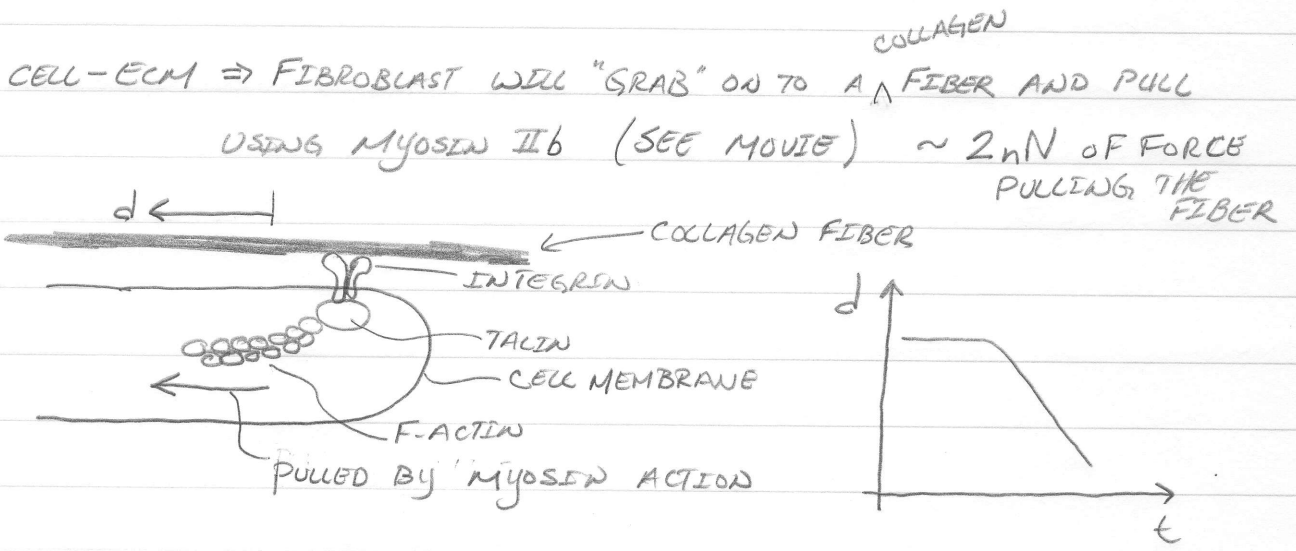 COLLAGEN
CELL-ECM ⇒ FIBROBLAST WILL "GRAB" ON TO A ^ FIBER AND PULL
USING MYOSIN IIb (SEE MOVIE) ~ 2nN OF FORCE
PULLING THE
FIBER
d
COLLAGEN FIBER
INTEGRIN
TALIN
CELL MEMBRANE
F-ACTIN
PULLED BY MYOSIN ACTION
d
t